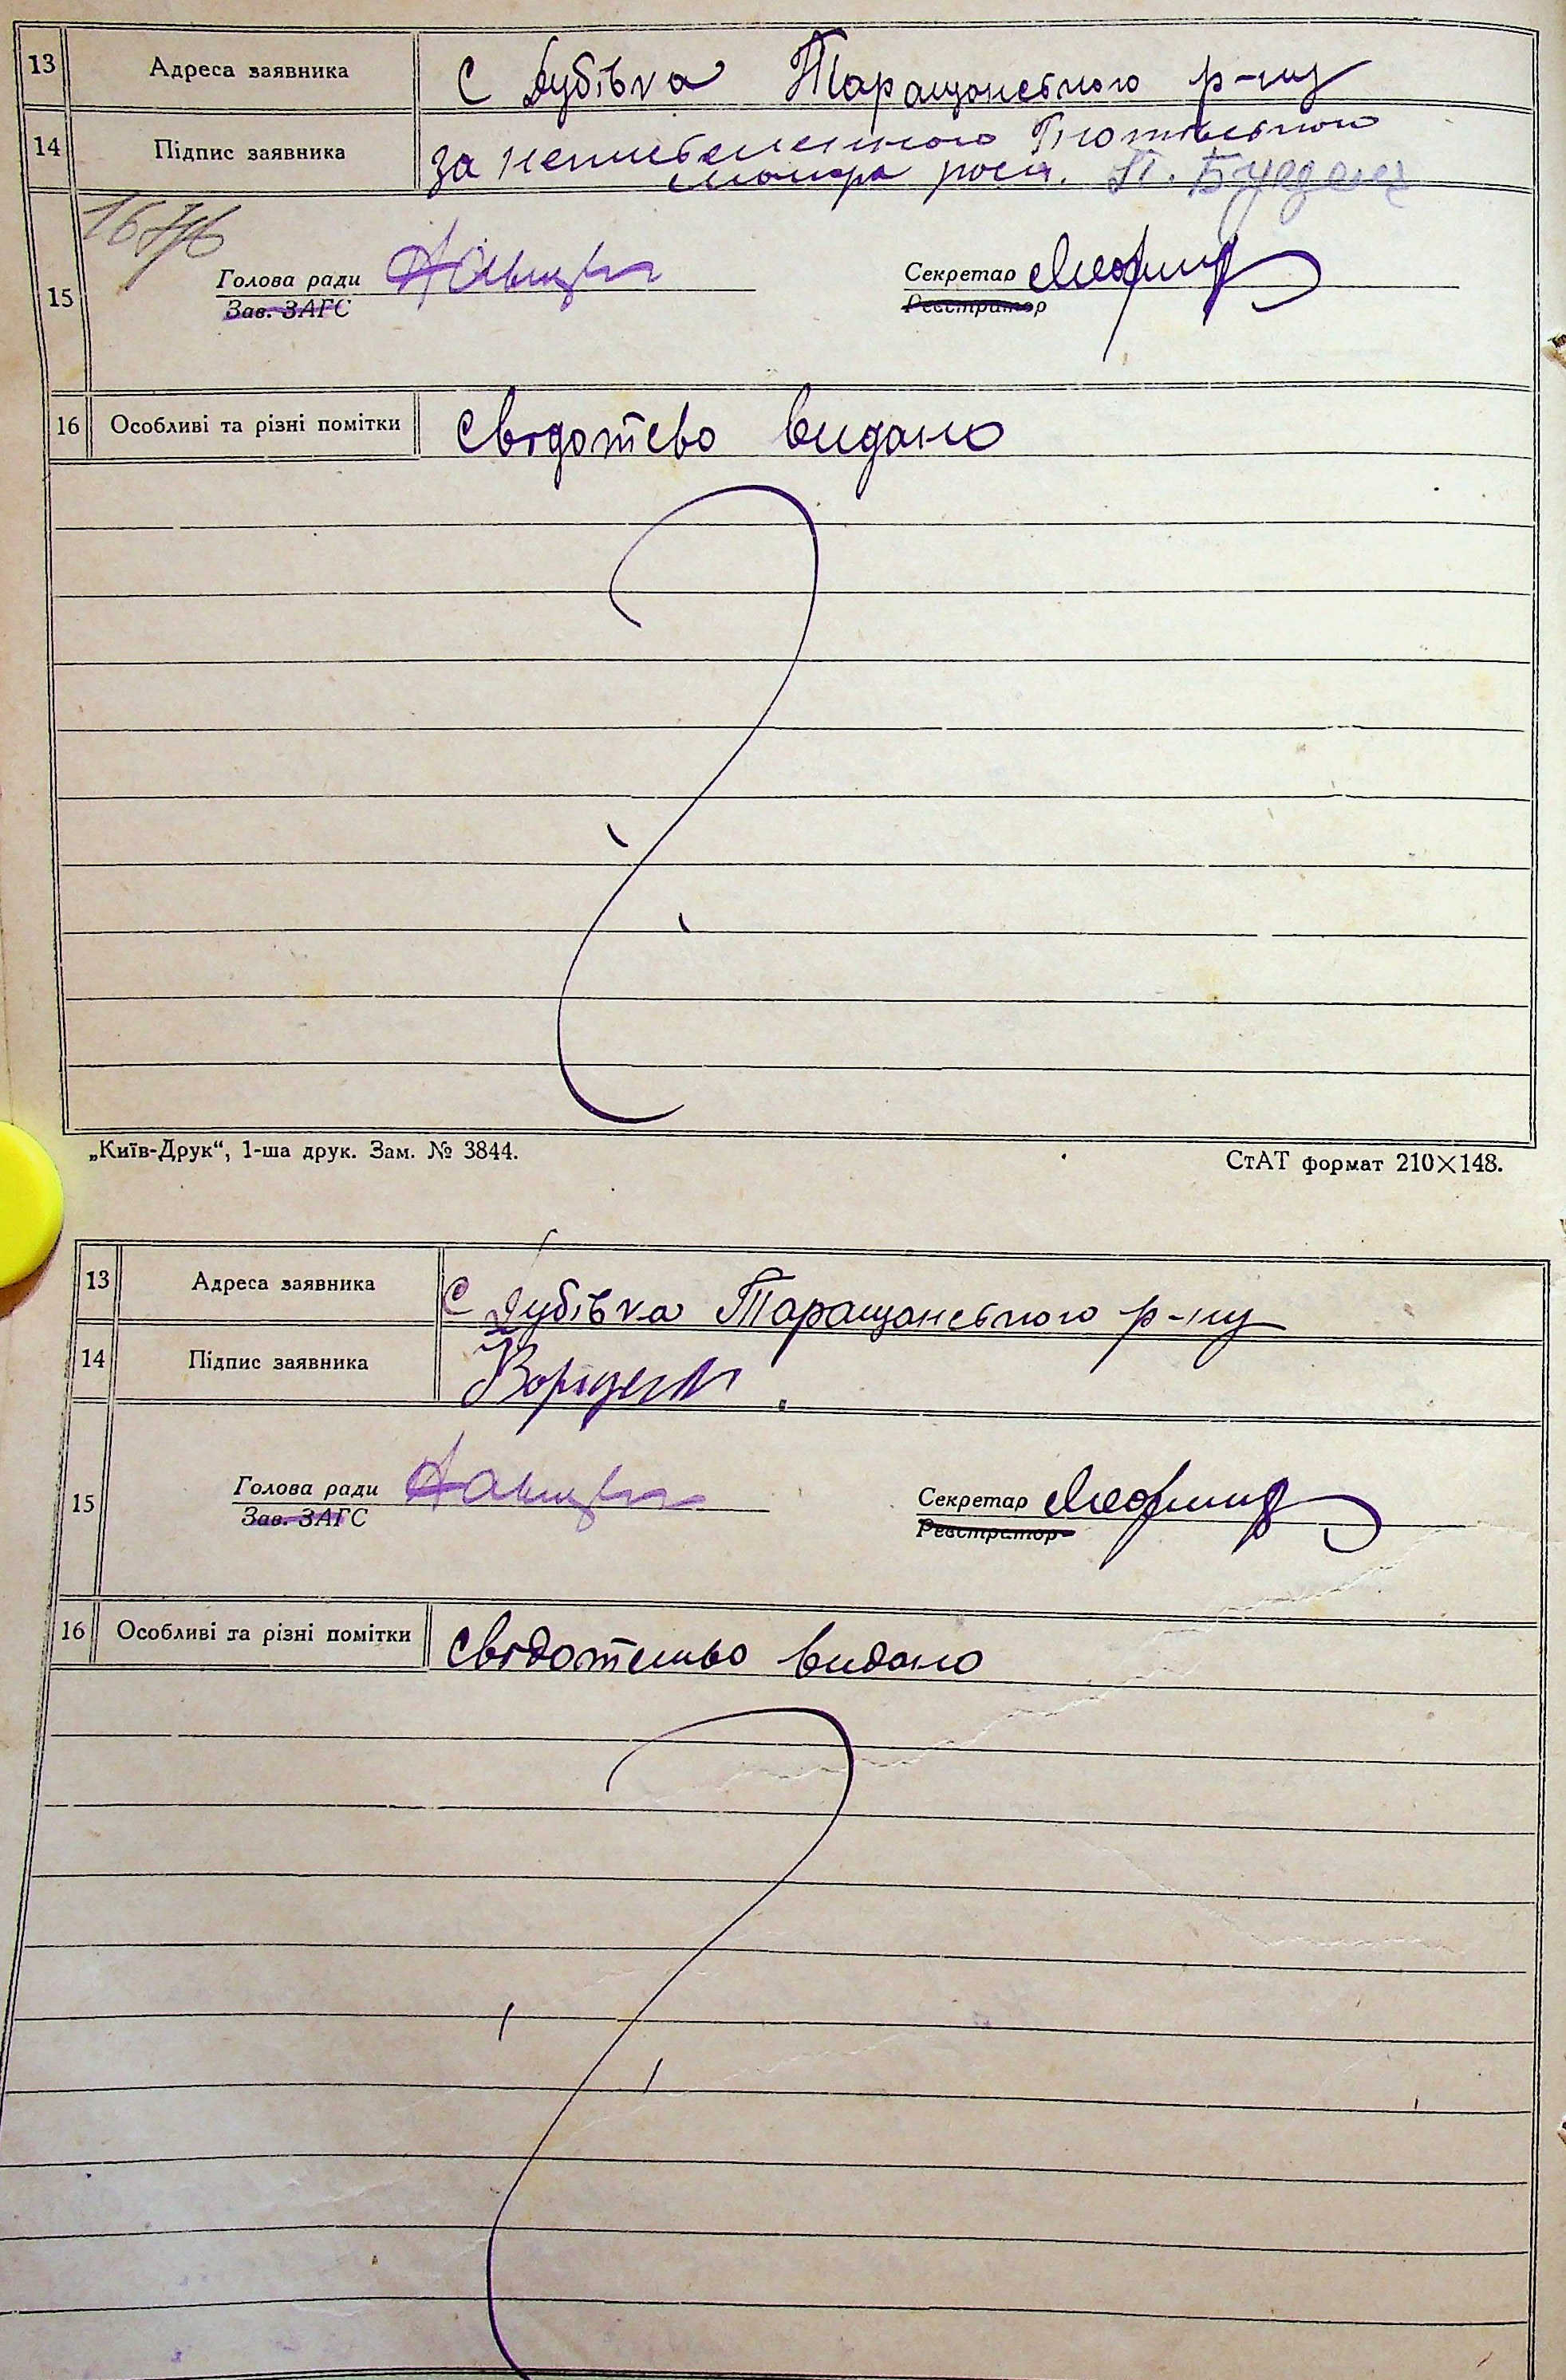 13 Адреса заявника С Дубівка Таращанського р-ну
14 Підпис заявника за неписьменного
роск. П.
15
Голова ради Секретар
Зав. ЗАГС Реєстратор
16 Особливі та різні помітки Свідотсво видано
„Київ-Друк“, 1-ша друк. Зам. № 3844. СтАТ формат 210×148.
13 Адреса заявника С Дубівка Таращанського р-ну
14 Підпис заявника
15
Голова ради Секретар
Зав. ЗАГС Реєстратор
16 Особливі та різні помітки Свідотство видано